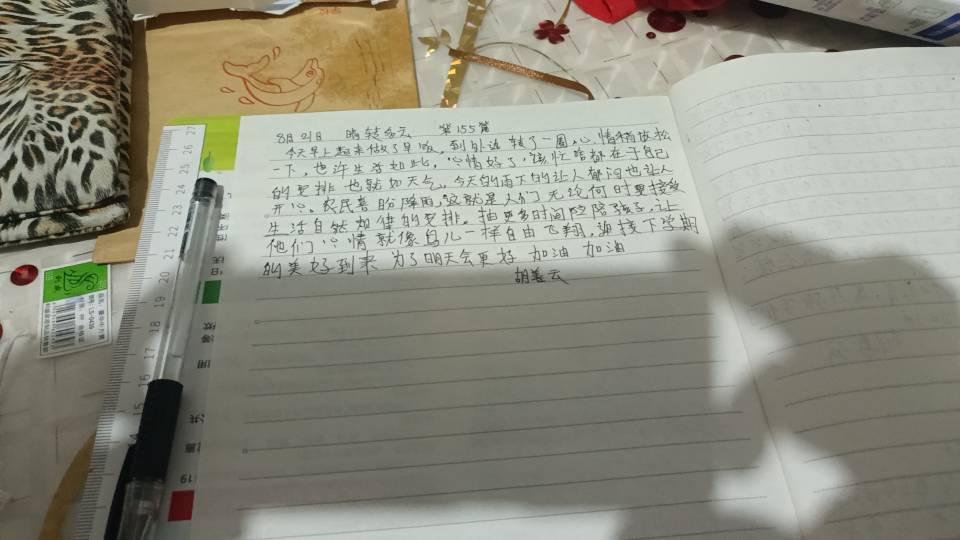 8月21日 晴转多云 第155篇
今天早上起来做了早饭。到外边转了一圈,心情稍放松
一下,也许生活如此,心情好了,该忙啥都在于自己
的安排也就如天气。今天的雨下的让人郁闷也让人
开心。农民喜盼降雨,这就是人们无论何时要接受
生活自然规律的安排。抽更多时间陪陪孩子,让
他们心情就像鸟儿一样自由飞翔,迎接下学期
的美好到来 为了明天会更好 加油 加油
胡姜云